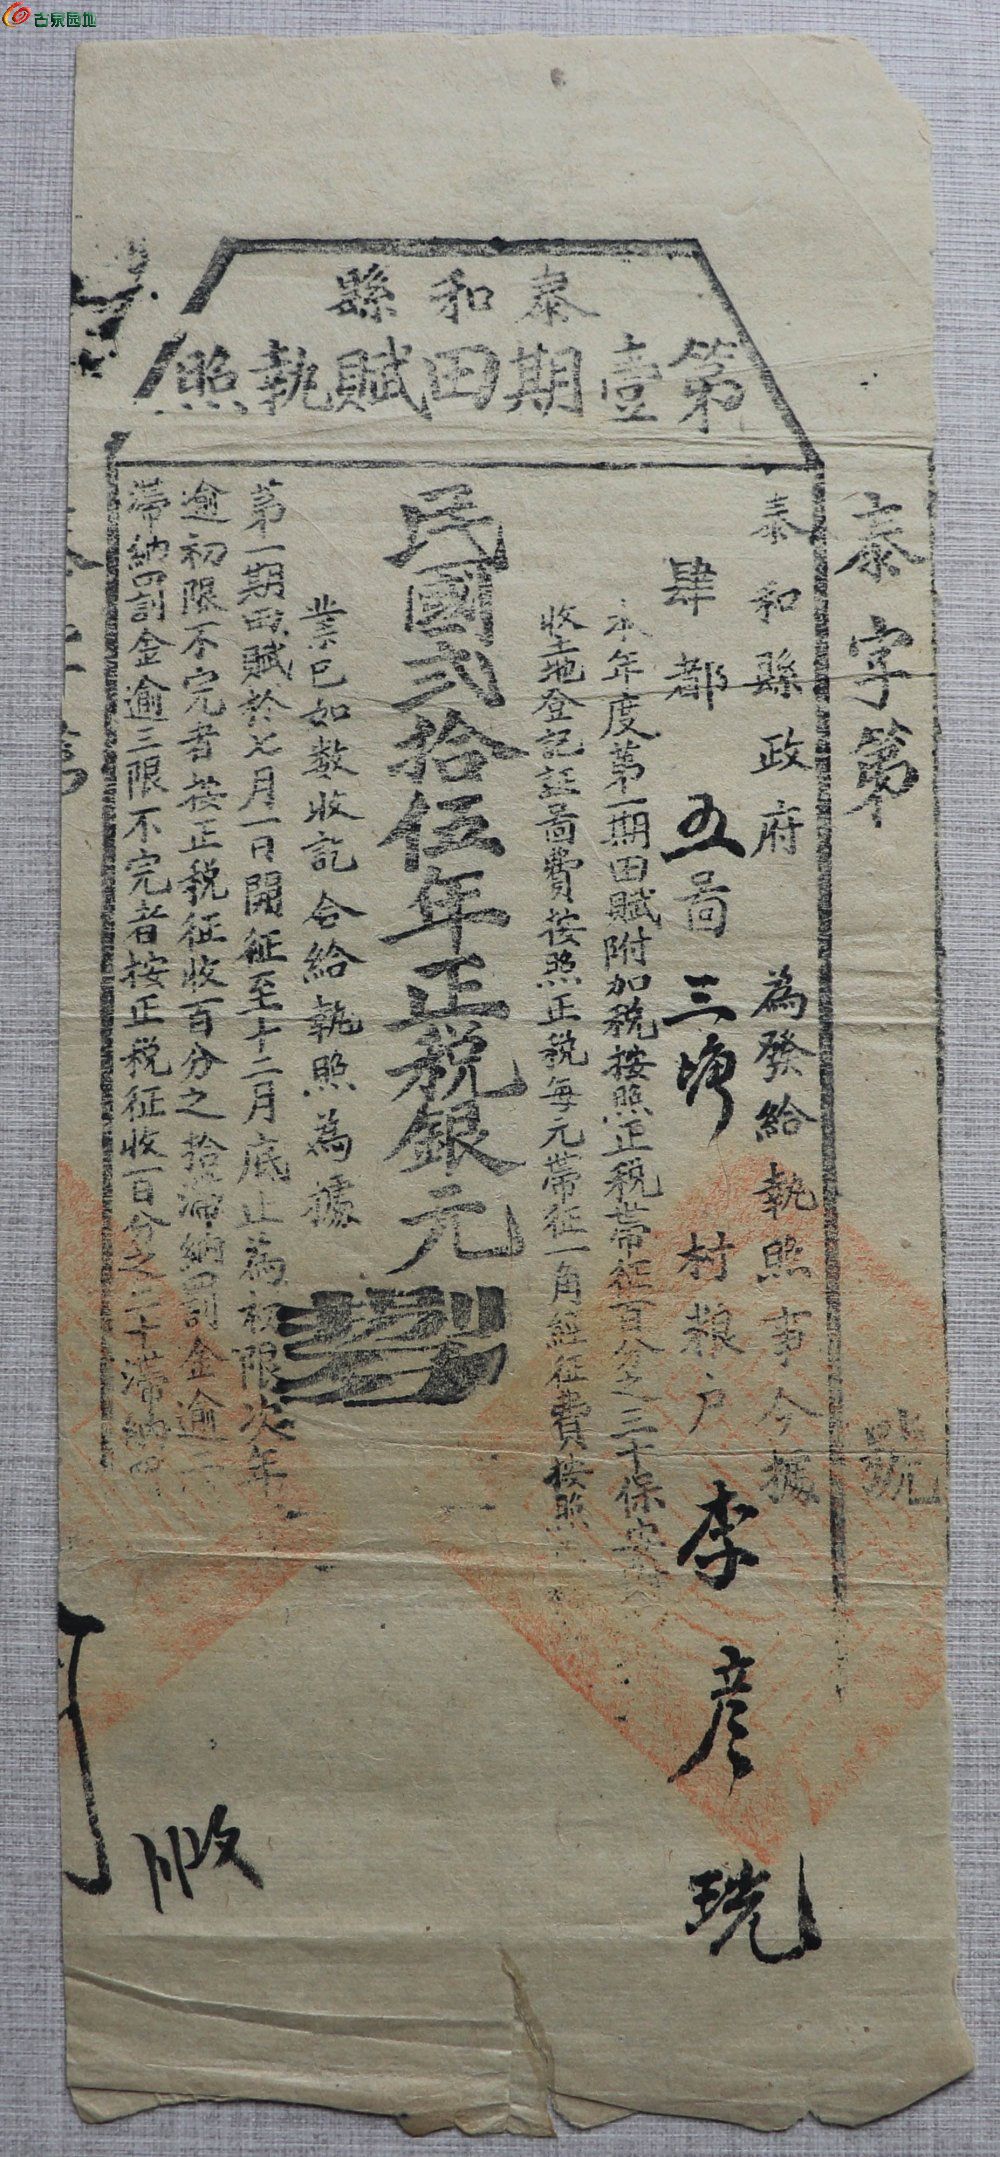 古泉园地
泰和縣
第壹期田賦執照
泰字第 號
泰和縣政府 為發給執照事今據
肆都五啚三塆村粮户李彦珖
本年度第一期田賦附加稅按照正稅帶征百分之三十保安
收土地登記証啚費按照正稅每元帶征一角經征費按照
民國弍拾伍年正税銀元
業已如数收訖合給執照為據
第一期田賦於七月一日開征至十二月底止為初限次年一
逾初限不完者按正税征收百分之拾滯納罰金逾二
滯納罰金逾三限不完者按正税征收百分之二十滯納